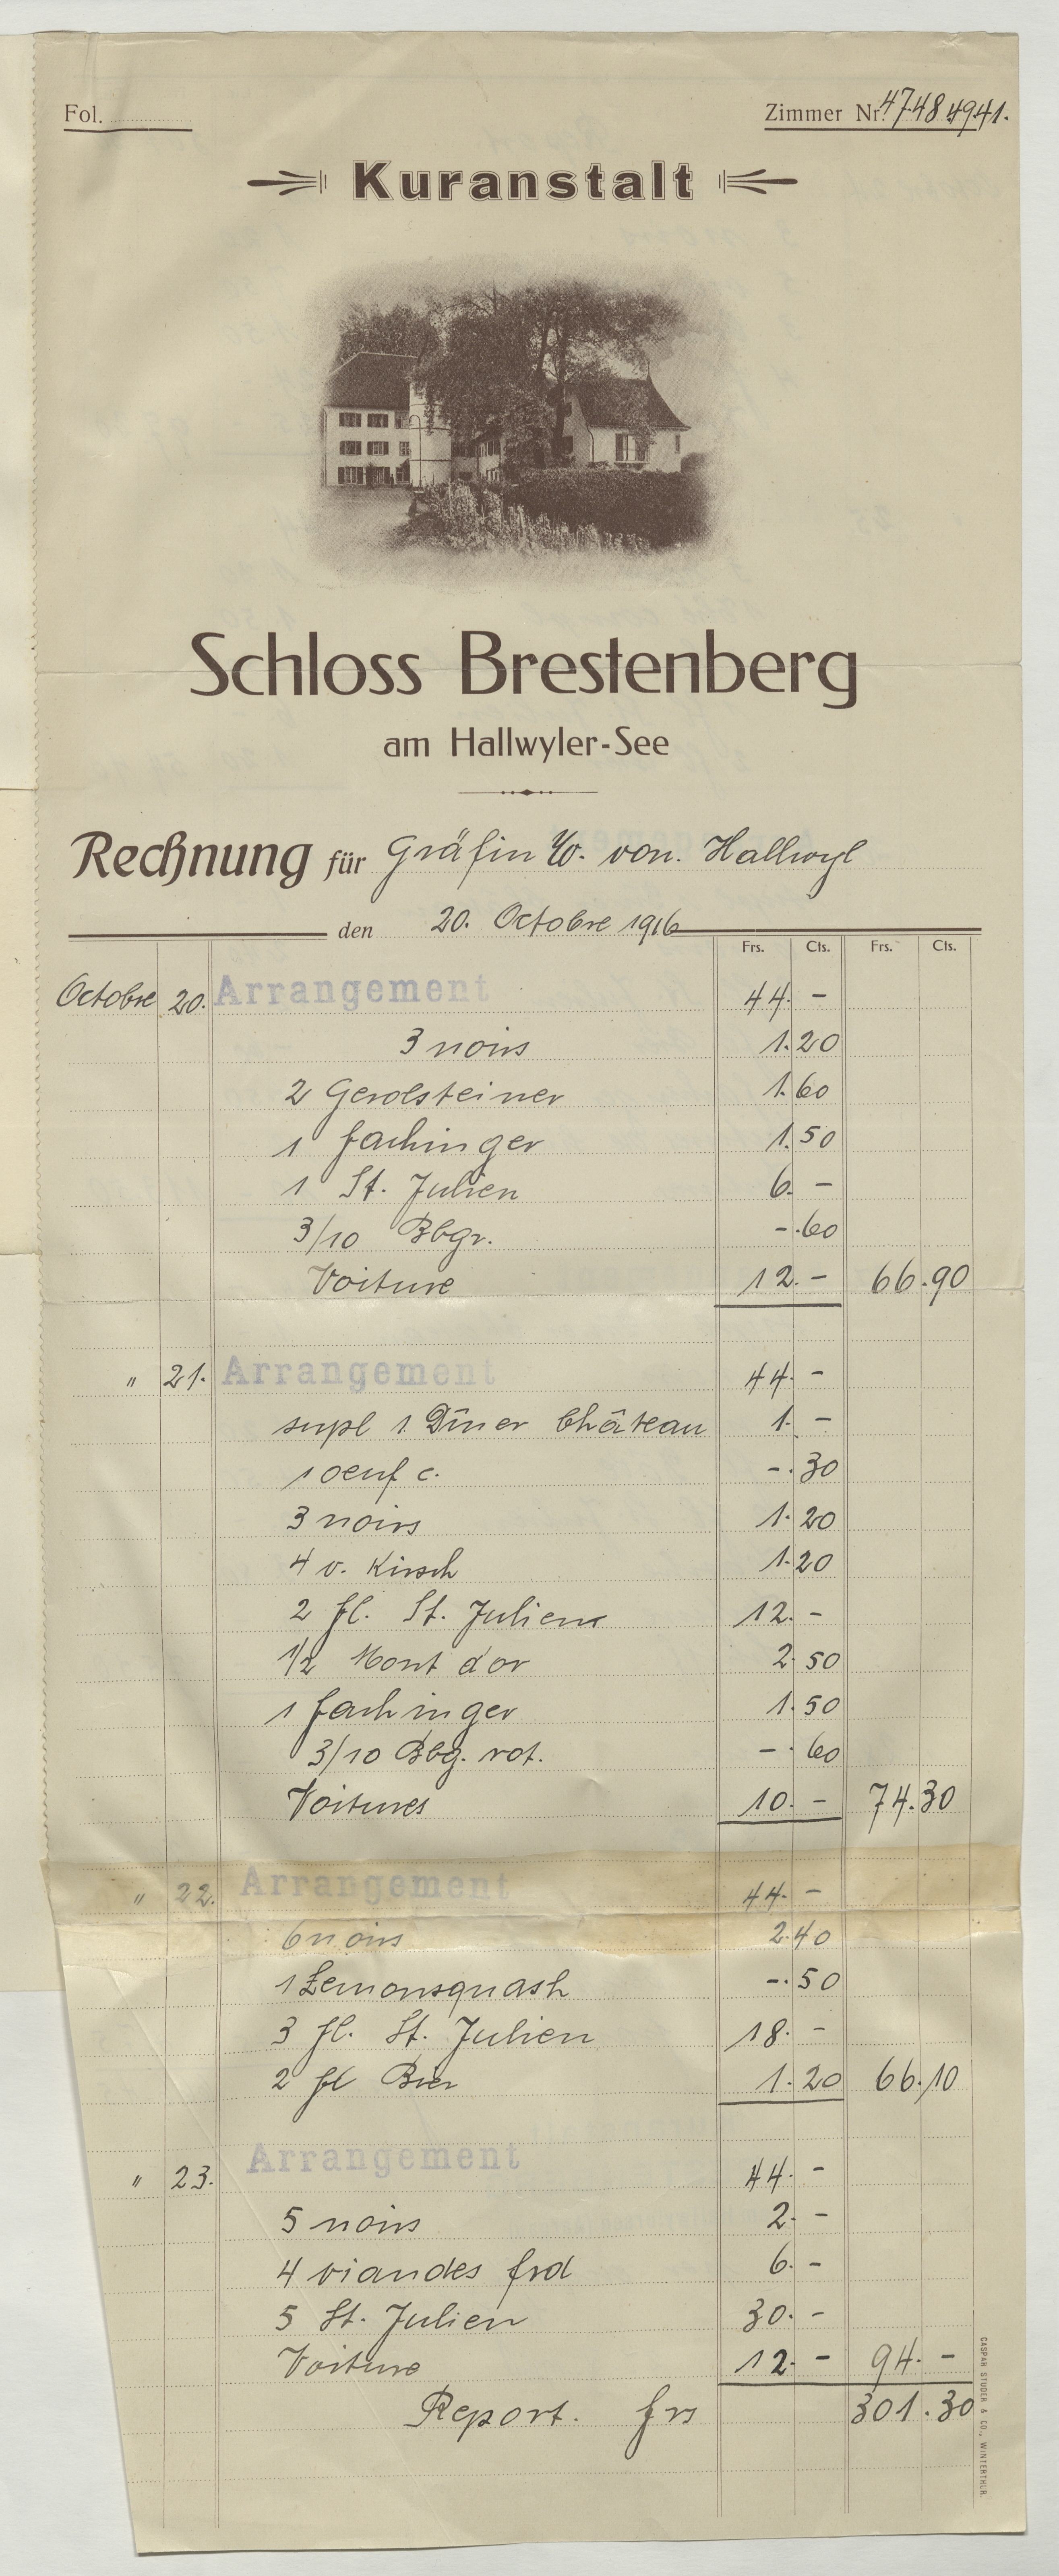 Fol.
Zimmer Nr. 47 48 49 41.
Kuranstalt
Schloss Brestenberg
am Hallwyler-See
Rechnung für Gräfin W. von. Hallwyl
den 20. Octobre 1916
Frs. Cts. Frs. Cts.
Octobre 20. Arrangement 44. -
3 noirs 1.20
2 Gerolsteiner 1.60
1 Fachinger 1.50
1 St. Julien 6. -
3/10 Bbgr. -.60
Voiture 12. - 66.90
" 21. Arrangement 44. -
supl 1 Dîner Château 1. -
1 oeuf c. -.30
3 noirs 1.20
4 v. Kirsch 1.20
2 fl. St. Julien 12. -
1/2 Mont d'or 2.50
1 Fachinger 1.50
3/10 Bbg. rot. -.60
Voitures 10. - 74.30
" 22. Arrangement 44. -
6 noirs 2.40
1 Lemonsquash -.50
3 fl. St. Julien 18. -
2 fl Bier 1.20 66.10
" 23. Arrangement 44. -
5 noirs 2. -
4 viandes frd 6. -
5 St. Julien 30. -
Voiture 12. - 94. -
Report. frs 301.30
CASPAR STUDER & CO., WINTERTHUR.